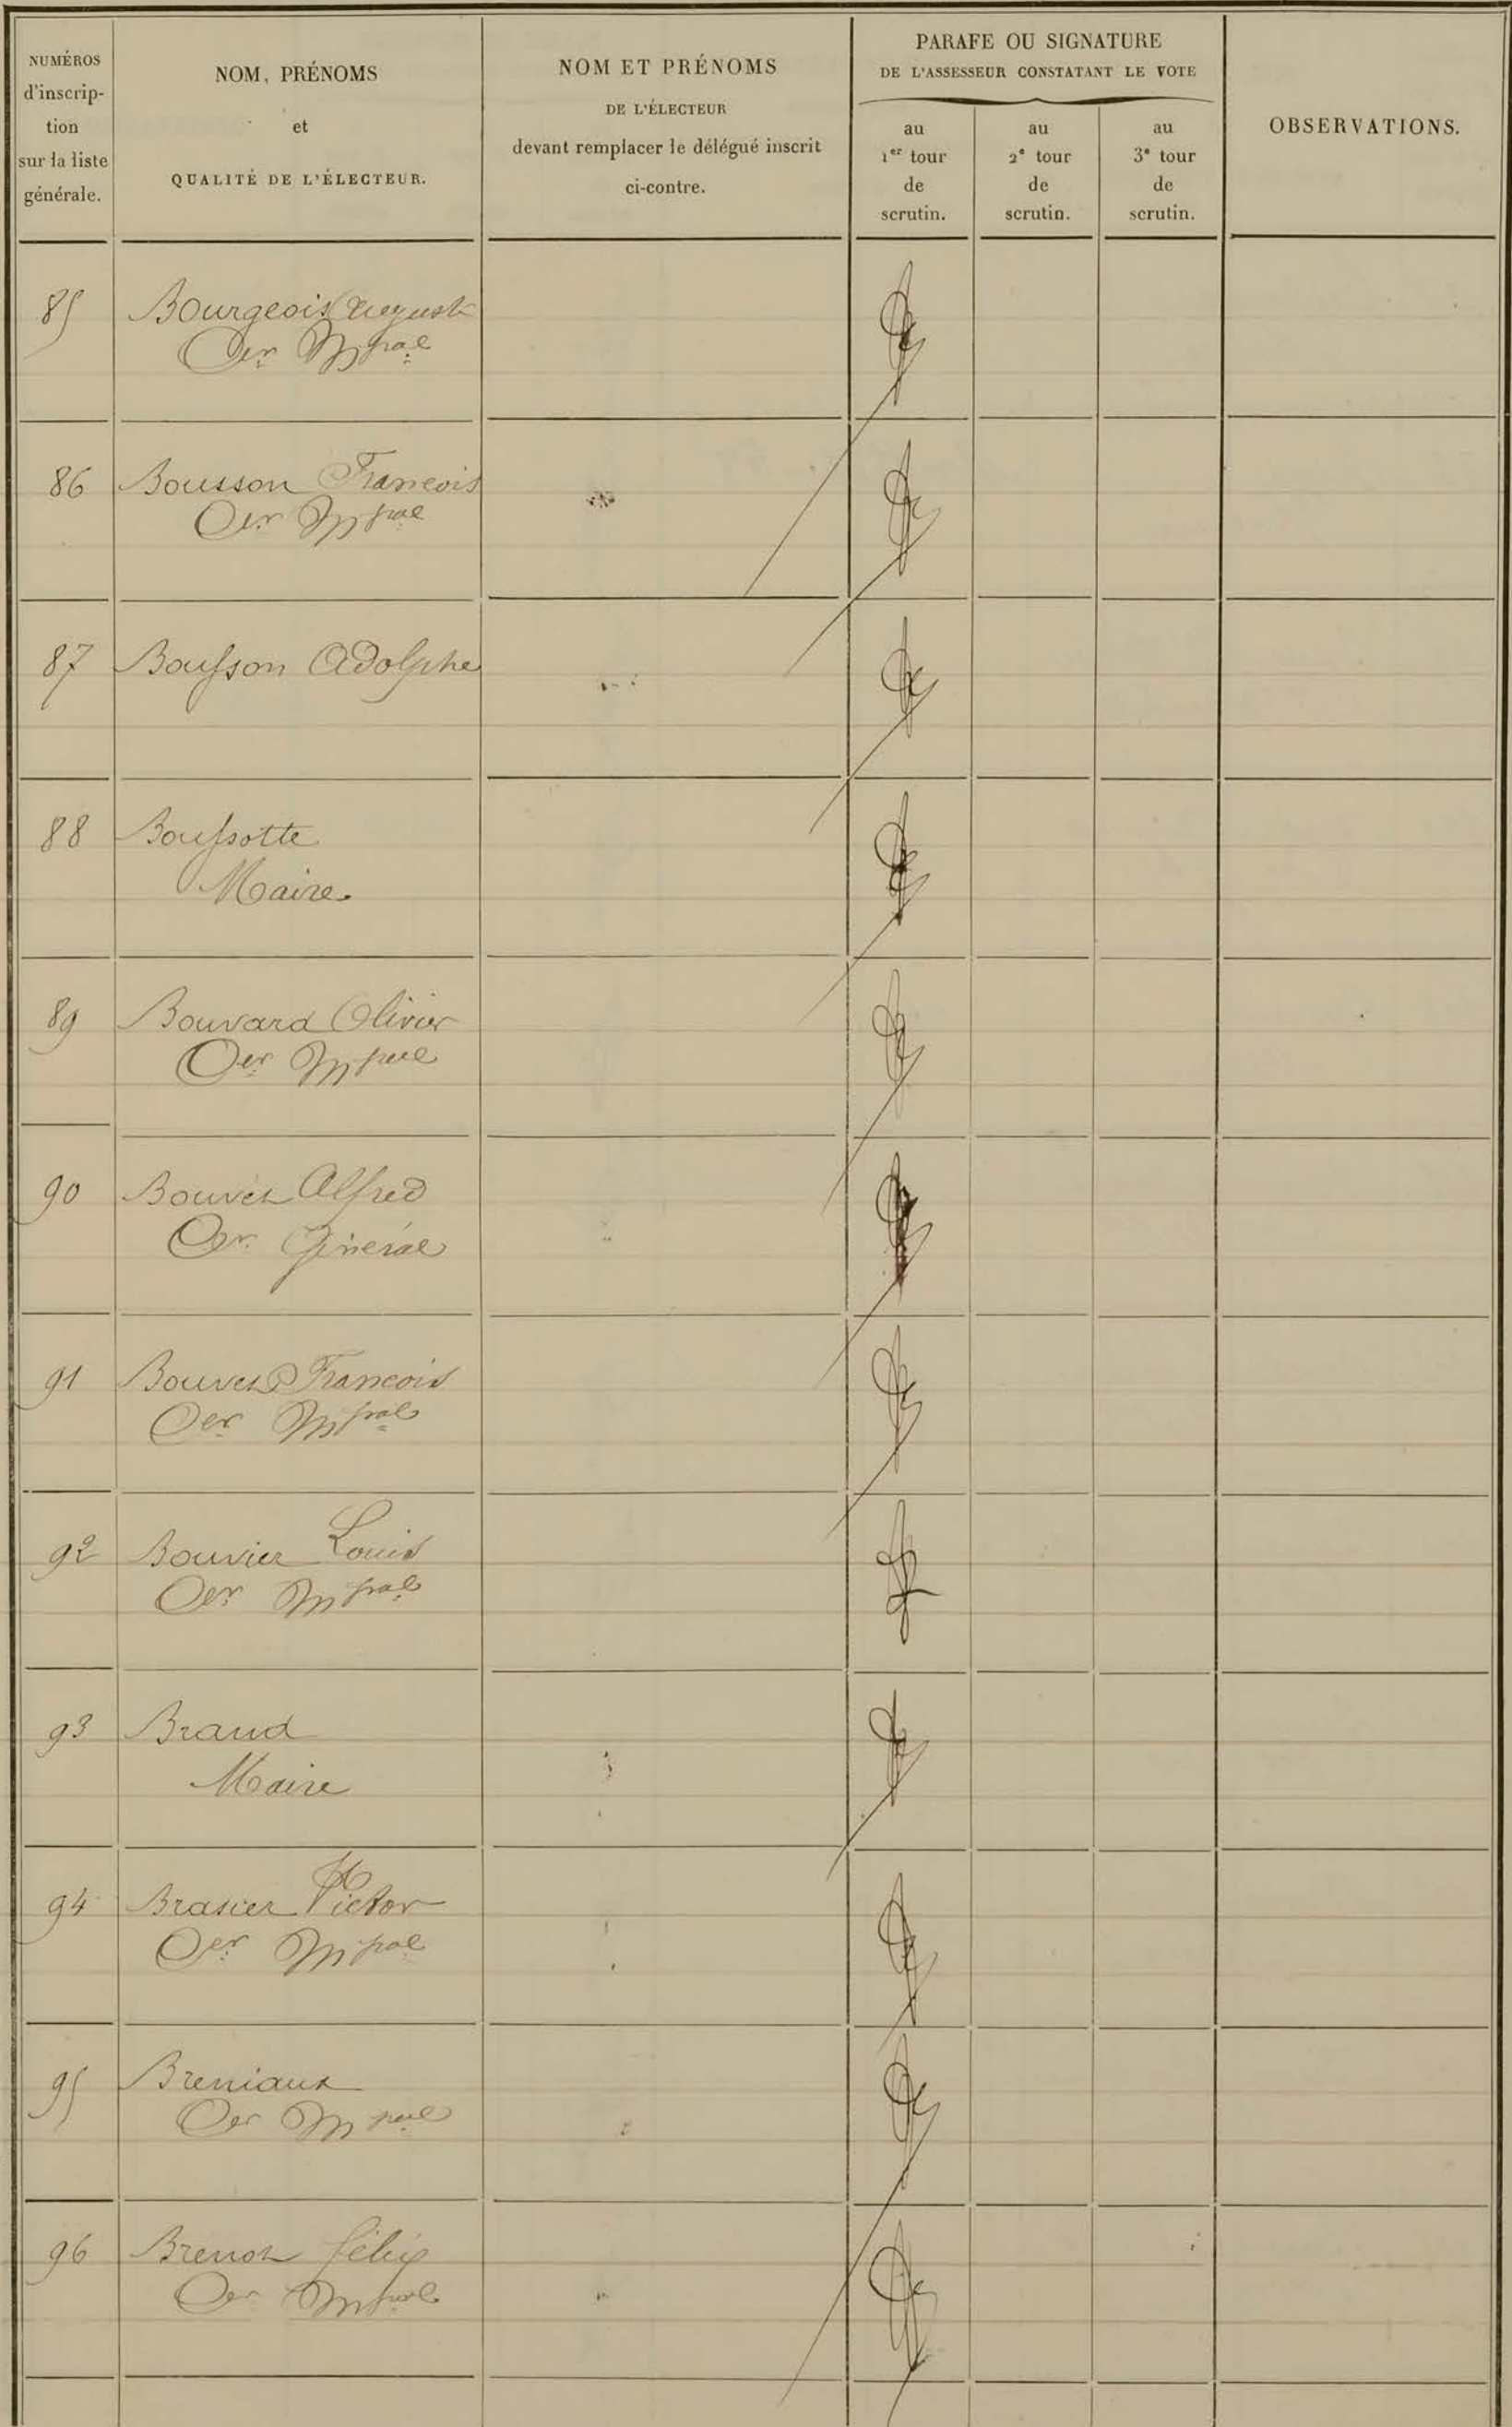 NUMÉROS
d'inscrip-
tion
sur la liste
générale.
NOM, PRÉNOMS
et
QUALITÉ DE L'ÉLECTEUR.
NOM ET PRÉNOMS
DE L'ÉLECTEUR
devant remplacer le délégué inscrit
ci-contre.
PARAFE OU SIGNATURE
DE L'ASSESSEUR CONSTATANT LE VOTE
au
1er tour
de
scrutin.
au
2e tour
de
scrutin.
au
3e tour
de
scrutin.
OBSERVATIONS.
85 Bourgeois Auguste
Cer Mpal
86 Bousson Francois
Cer Mpal
87 Bousson Adolphe
88 Boussotte
Maire
89 Bouvard Olivier
Cer Mpal
90 Bouvet Alfred
Cer Général
91 Bouvet Francois
Cer Mpal
92 Bouvier Louis
Cer Mpal
93 Braud
Maire
94 Brasier Victor
Cer Mpal
95 Breniaux
Cer Mpal
96 Brenot Félix
Cer Mpal